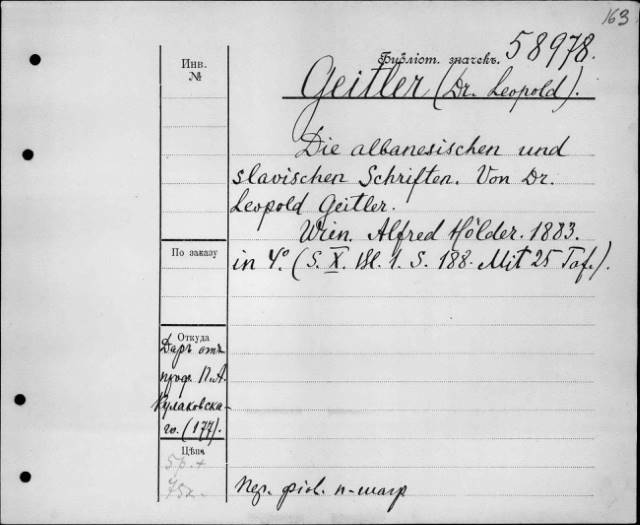 163
Библіот. значекъ. 58978.
Инв.
№
Geitler (Dr. Leopold).
Die albanesischen und
slavischen Schriften. Von Dr.
Leopold Geitler.
Wien. Alfred Hölder. 1883.
По заказу
in 4°. (S. X. Bl. 1. S. 188. Mit 25 Taf.).
Откуда
Даръ отъ
проф. П. А.
Кулаковска-
го. (177).
Цѣна
5 р. +
75 к.